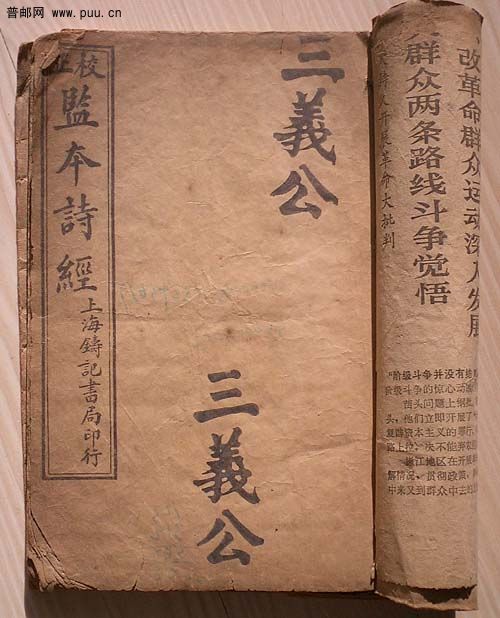 普邮网
www.puu.cn
校正
監本詩經
上海鑄記書局印行
三義公
三義公
改革命群众运动深入发展
群众两条路线斗争觉悟
人开展革命大批判
“阶级斗争并没有结
阶级斗争的惊心动
苗头问题上
头，他们立即开展了
复辟资本主义的罪行
路上拉，决不能
江地区在开展
解情况，贯彻政策，
中来又到群众中去的